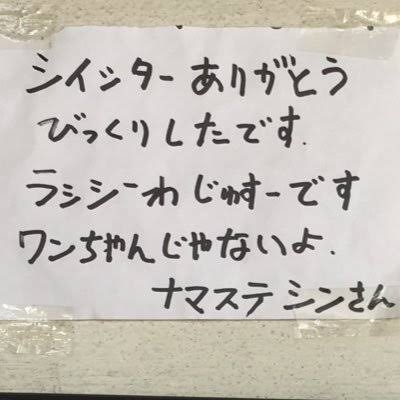 シイッターありがとう
びっくりしたです.
ラシシーわじゅすーです
ワンちゃんじゃないよ.
ナマステシンさん